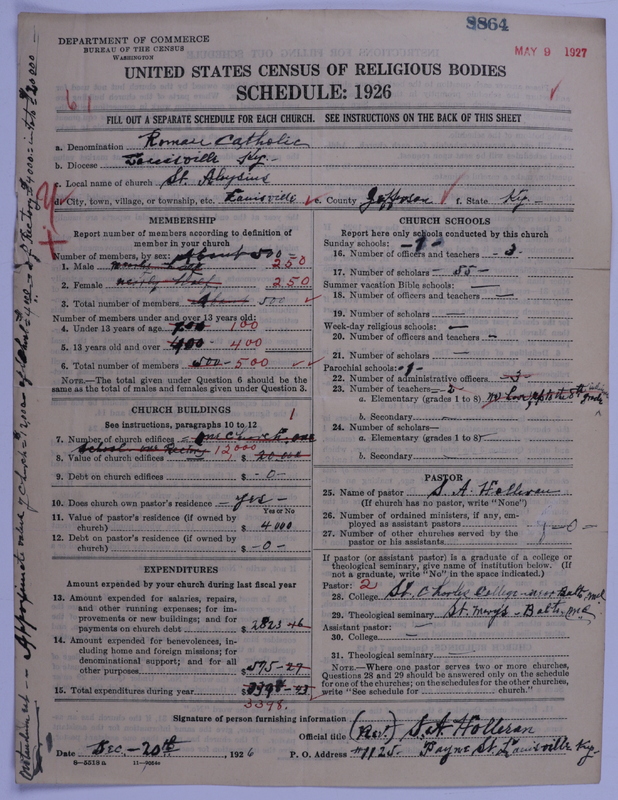 8864
MAY 9 1927
DEPARTMENT OF COMMERCE
BUREAU OF THE CENSUS
WASHINGTON
UNITED STATES CENSUS OF RELIGIOUS BODIES
SCHEDULE: 1926
FILL OUT A SEPARATE SCHEDULE FOR EACH CHURCH. SEE INSTRUCTIONS ON THE BACK OF THIS SHEET
a. Denomination Roman Catholic
b. Diocese Louisville Ky.
c. Local name of church St. Aloysius
City, town, village, or township, etc. Louisville e. County Jefferson f. State Ky.
MEMBERSHIP
Report number of members according to definition of
member in your church
Number of members, by sex: About 500
1. Male 250
2. Female 250
3. Total number of members About 500
Number of members under and over 13 years old:
4. Under 13 years of age 100 100
5. 13 years old and over 400 400
6. Total number of members 500 - 500
NOTE.—The total given under Question 6 should be the
same as the total of males and females given under Question 3.
CHURCH BUILDINGS
See instructions, paragraphs 10 to 12
7. Number of church edifices one Church, one 1
School one Rectory 12,000
8. Value of church edifices $ 20.000
9. Debt on church edifices $ -0-
10. Does church own pastor's residence - yes -
Yes or No
11. Value of pastor's residence (if owned by
church) $ 4.000
12. Debt on pastor's residence (if owned by
church) $ -0-
EXPENDITURES
Amount expended by your church during last fiscal year
13. Amount expended for salaries, repairs,
and other running expenses; for im-
provements or new buildings; and for
payments on church debt $ 2823-46
14. Amount expended for benevolences, in-
cluding home and foreign missions; for
denominational support; and for all
other purposes $ 575-27
15. Total expenditures during year $ 3398-73
3398.
CHURCH SCHOOLS
Report here only schools conducted by this church
Sunday schools: -1-
16. Number of officers and teachers - 3 -
17. Number of scholars - 55 -
Summer vacation Bible schools: —
18. Number of officers and teachers —
19. Number of scholars —
Week-day religious schools: —
20. Number of officers and teachers —
21. Number of scholars —
Parochial schools: -1-
22. Number of administrative officers - 3 -
23. Number of teachers— 2 -
a. Elementary (grades 1 to 8) up to the 8th grade
b. Secondary —
24. Number of scholars—
a. Elementary (grades 1 to 8) —
b. Secondary —
PASTOR
25. Name of pastor S. A. Holleran
(If church has no pastor, write "None")
26. Number of ordained ministers, if any, em-
ployed as assistant pastors -0-
27. Number of other churches served by the
pastor or his assistants
If pastor (or assistant pastor) is a graduate of a college or
theological seminary, give name of institution below. (If
not a graduate, write "No" in the space indicated.)
Pastor: 2
28. College St. Charles College - near Balto, Md
29. Theological seminary St. Marys - Balto. Md
Assistant pastor: —
30. College —
31. Theological seminary —
NOTE.—Where one pastor serves two or more churches,
Questions 28 and 29 should be answered only on the schedule
for one of the churches; on the schedules for the other churches,
write "See schedule for church."
Signature of person furnishing information
Official title (Rev.) S. A. Holleran
Date Dec - 20th, 1926 P. O. Address #1125 - Payne St. Louisville Ky.
8—5518a 11—9054c